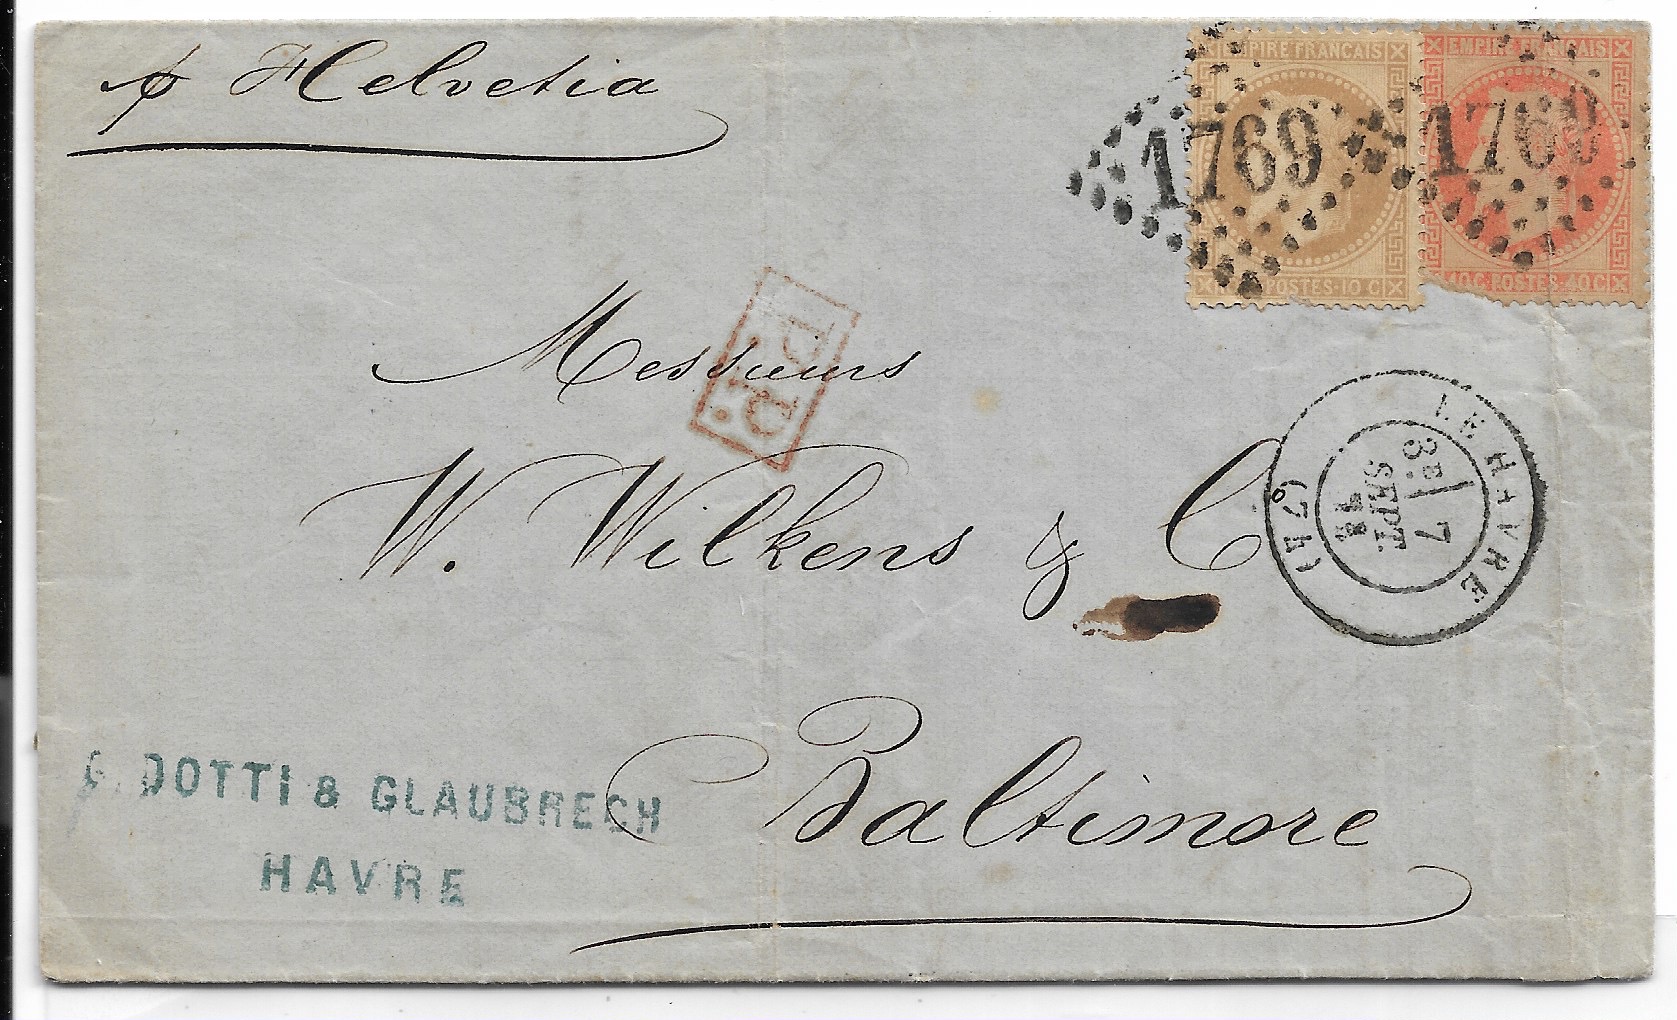 p Helvetia
EMPIRE FRANÇAIS
POSTES·10 C
1769
EMPIRE FRANÇAIS
40C. POSTES·40C
1769
P.P.
Messieurs
W. Wilkens & C
LE HAVRE
3E 7
SEPT.
(74)
Baltimore
DOTTI & GLAUBRECH
HAVRE